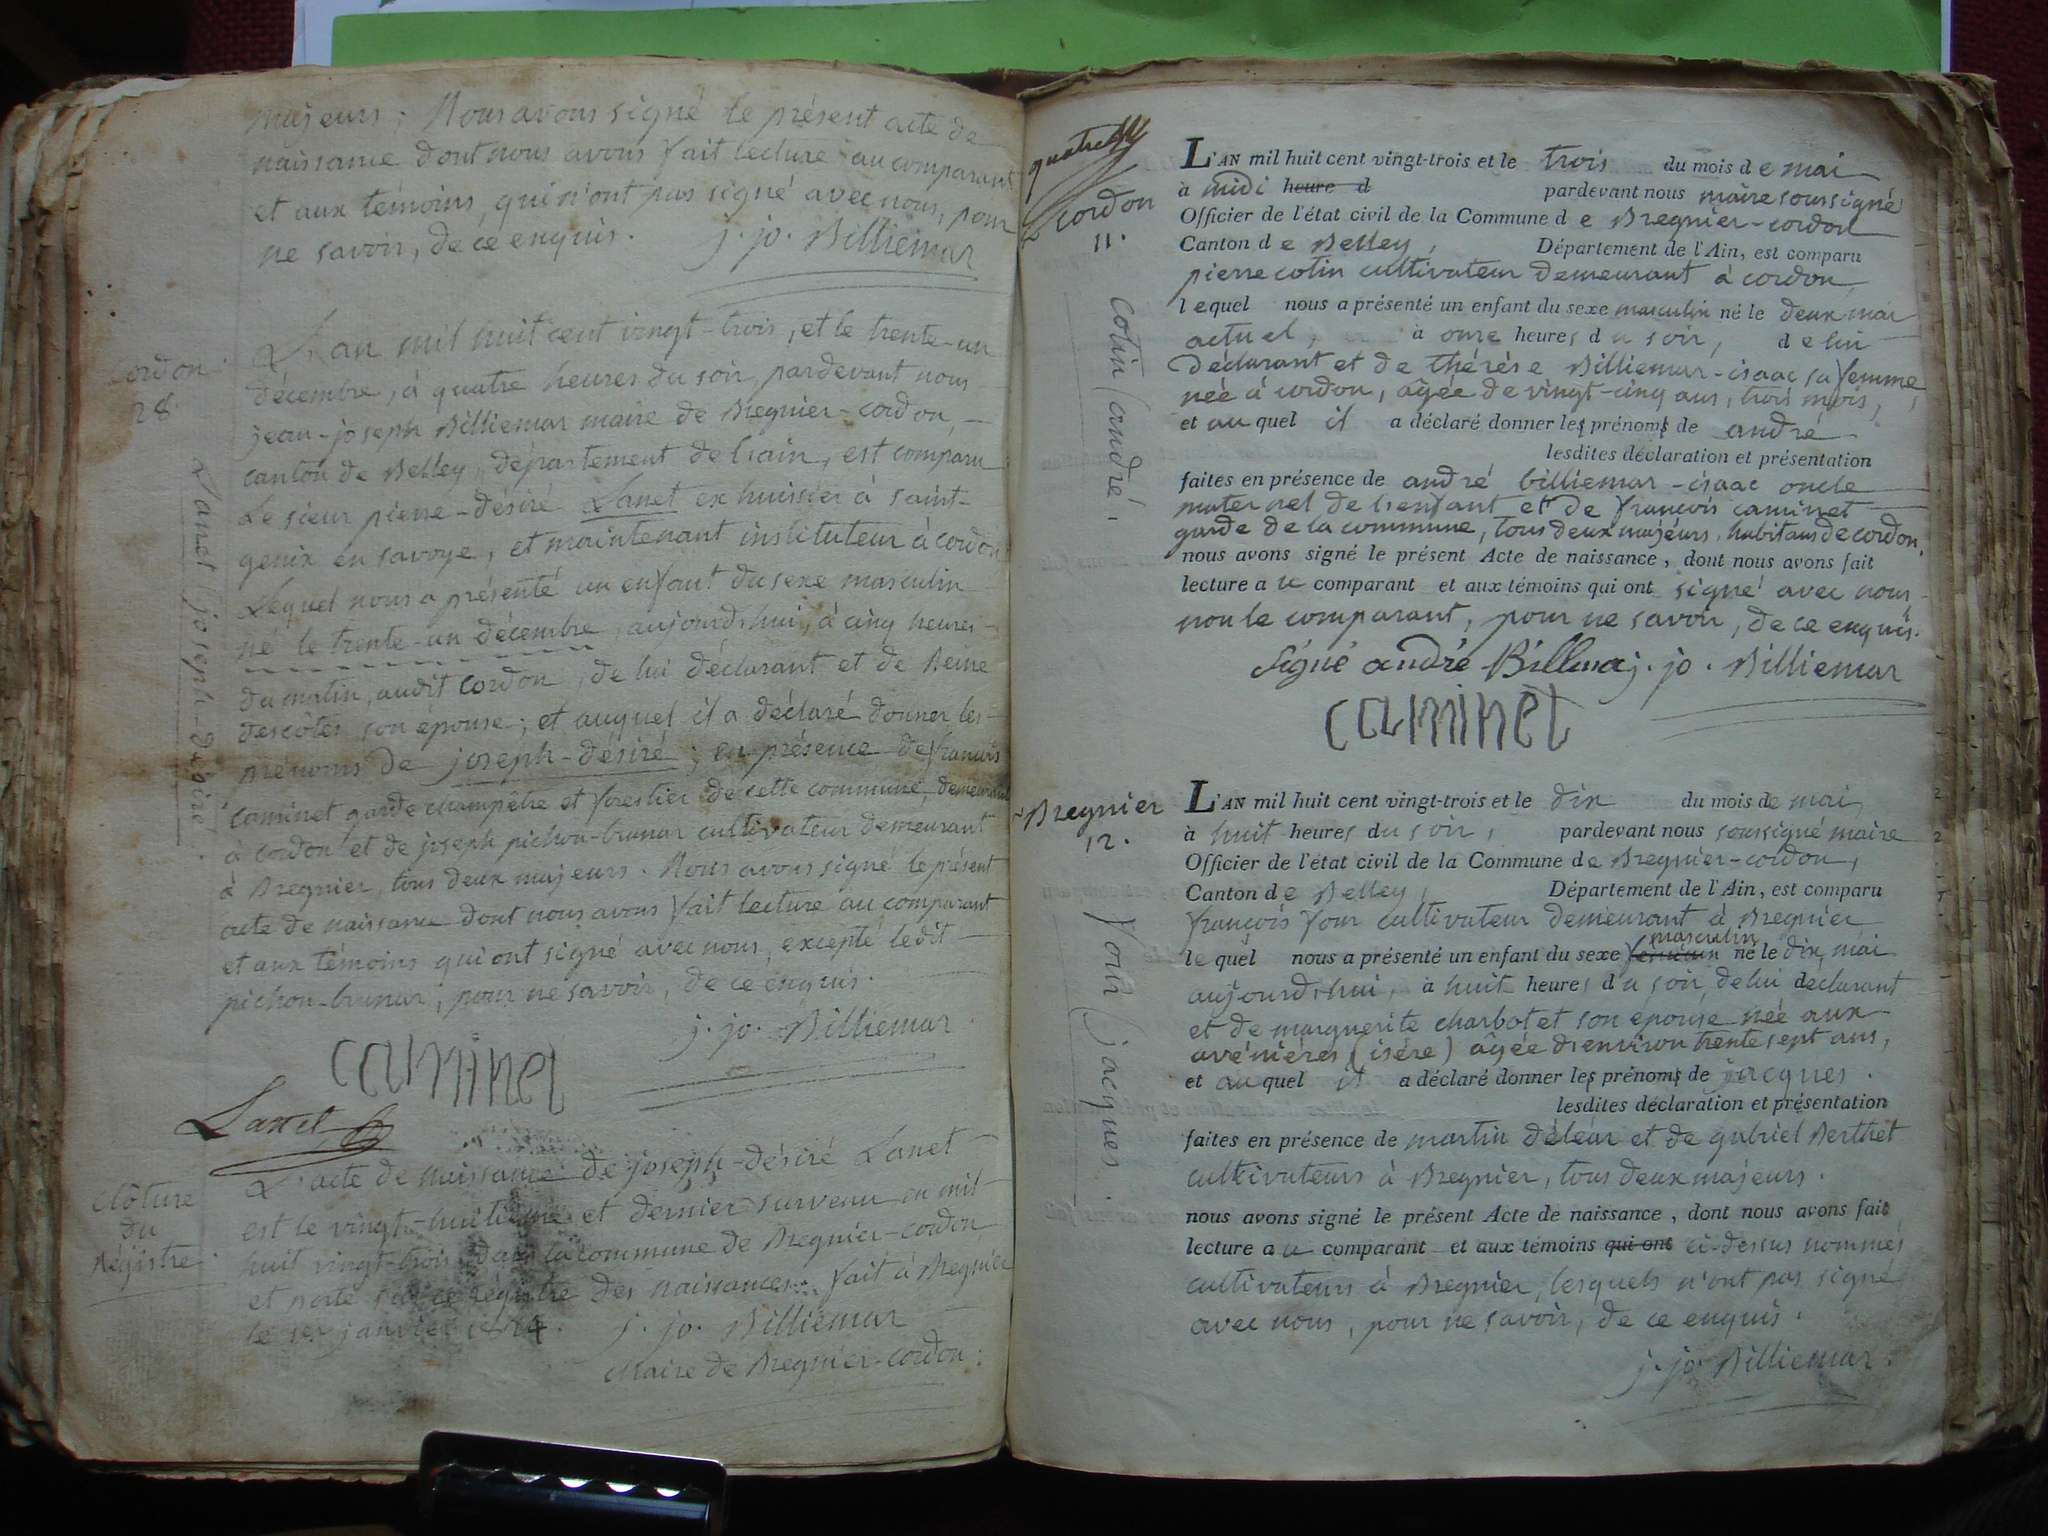 majeurs ; Nous avons signé le présent acte de
naissance dont nous avons fait lecture au comparant
et aux témoins, qui n'ont pas signé avec nous, pour
ne savoir, de ce enquis. j. jo. Billiemar
cordon
28
Lanet joseph-désiré.
L'an mil huit cent vingt-trois, et le trente-un
décembre, à quatre heures du soir, pardevant nous
jean-joseph Billiemar maire de Bregnier-cordon,
canton de Belley, département de l'ain, est comparu
Le sieur pierre-désiré Lanet ex huissier à saint-
genix en savoye, et maintenant instituteur à cordon
Lequel nous a présenté un enfant du sexe masculin
né le trente-un décembre aujourd'hui, à cinq heures
du matin, audit cordon, de lui déclarant et de Reine
descôtes son épouse ; et auquel il a déclaré donner les
prénoms de joseph-désiré ; en présence de françois
caminet garde champêtre et forestier de cette commune, demeurant
à cordon et de joseph pichon-brunar cultivateur demeurant
à Bregnier, tous deux majeurs. Nous avons signé le présent
acte de naissance dont nous avons fait lecture au comparant
et aux témoins qui ont signé avec nous, excepté ledit
pichon-brunar, pour ne savoir, de ce enquis.
j. jo. Billiemar
caminet
Lanet
clôture
du
Régistre
L'acte de naissance de joseph-désiré Lanet
est le vingt-huitième et dernier survenu en mil
huit vingt-trois dans la commune de Bregnier-cordon
et porté sur ce régistre des naissances. fait à Bregnier
le 1er janvier 1824. j. jo. Billiemar
Maire de Bregnier-cordon.
quatre
cordon
11.
colin (andré.
L'AN mil huit cent vingt-trois et le trois du mois de mai
à midi heure d pardevant nous maire soussigné
Officier de l'état civil de la Commune de Bregnier-cordon
Canton de Belley, Département de l'Ain, est comparu
pierre colin cultivateur demeurant à cordon
lequel nous a présenté un enfant du sexe masculin né le deux mai
actuel, à onze heures du soir, de lui
déclarant et de thérése Billiemar-isaac sa femme
née à cordon, agée de vingt-cinq ans, trois mois,
et auquel il a déclaré donner les prénoms de andré
lesdites déclaration et présentation
faites en présence de andré billiemar-isaac oncle
maternel de l'enfant et de françois caminet
garde de la commune, tous deux majeurs, habitans de cordon.
nous avons signé le présent Acte de naissance, dont nous avons fait
lecture au comparant et aux témoins qui ont signé avec nous
non le comparant, pour ne savoir, de ce enquis.
Signé andré Billma j. jo. Billiemar
caminet
Bregnier
12.
four (jacques.
L'AN mil huit cent vingt-trois et le dix du mois de mai,
à huit heures du soir, pardevant nous soussigné maire
Officier de l'état civil de la Commune de Bregnier-cordon,
Canton de Belley, Département de l'Ain, est comparu
françois four cultivateur demeurant à Bregnier
masculin
lequel nous a présenté un enfant du sexe féminin né le dix mai
aujourd'hui, à huit heures du soir, de lui déclarant
et de marguerite charbotet son épouse née aux
avénières, (isére) agée d'environ trente sept ans,
et auquel il a déclaré donner les prénoms de jacques.
lesdites déclaration et présentation
faites en présence de martin déléar et de gabriel Berthet
cultivateurs à Bregnier, tous deux majeurs.
nous avons signé le présent Acte de naissance, dont nous avons fait
lecture au comparant et aux témoins qui ont ci-dessus nommés
cultivateurs à Bregnier, lesquels n'ont pas signé
avec nous, pour ne savoir, de ce enquis.
j. jo. Billiemar.